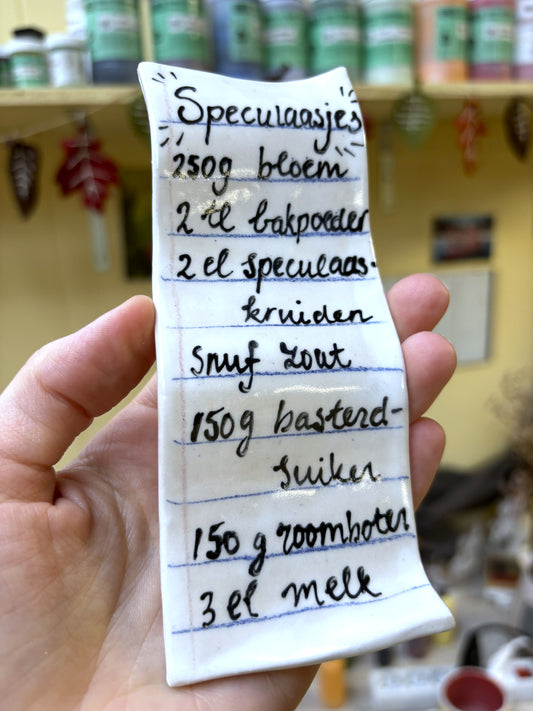 Speculaasjes
250g bloem
2 tl bakpoeder
2 el speculaas-
kruiden
snuf zout
150g basterd-
suiker
150 g roomboter
3 el melk